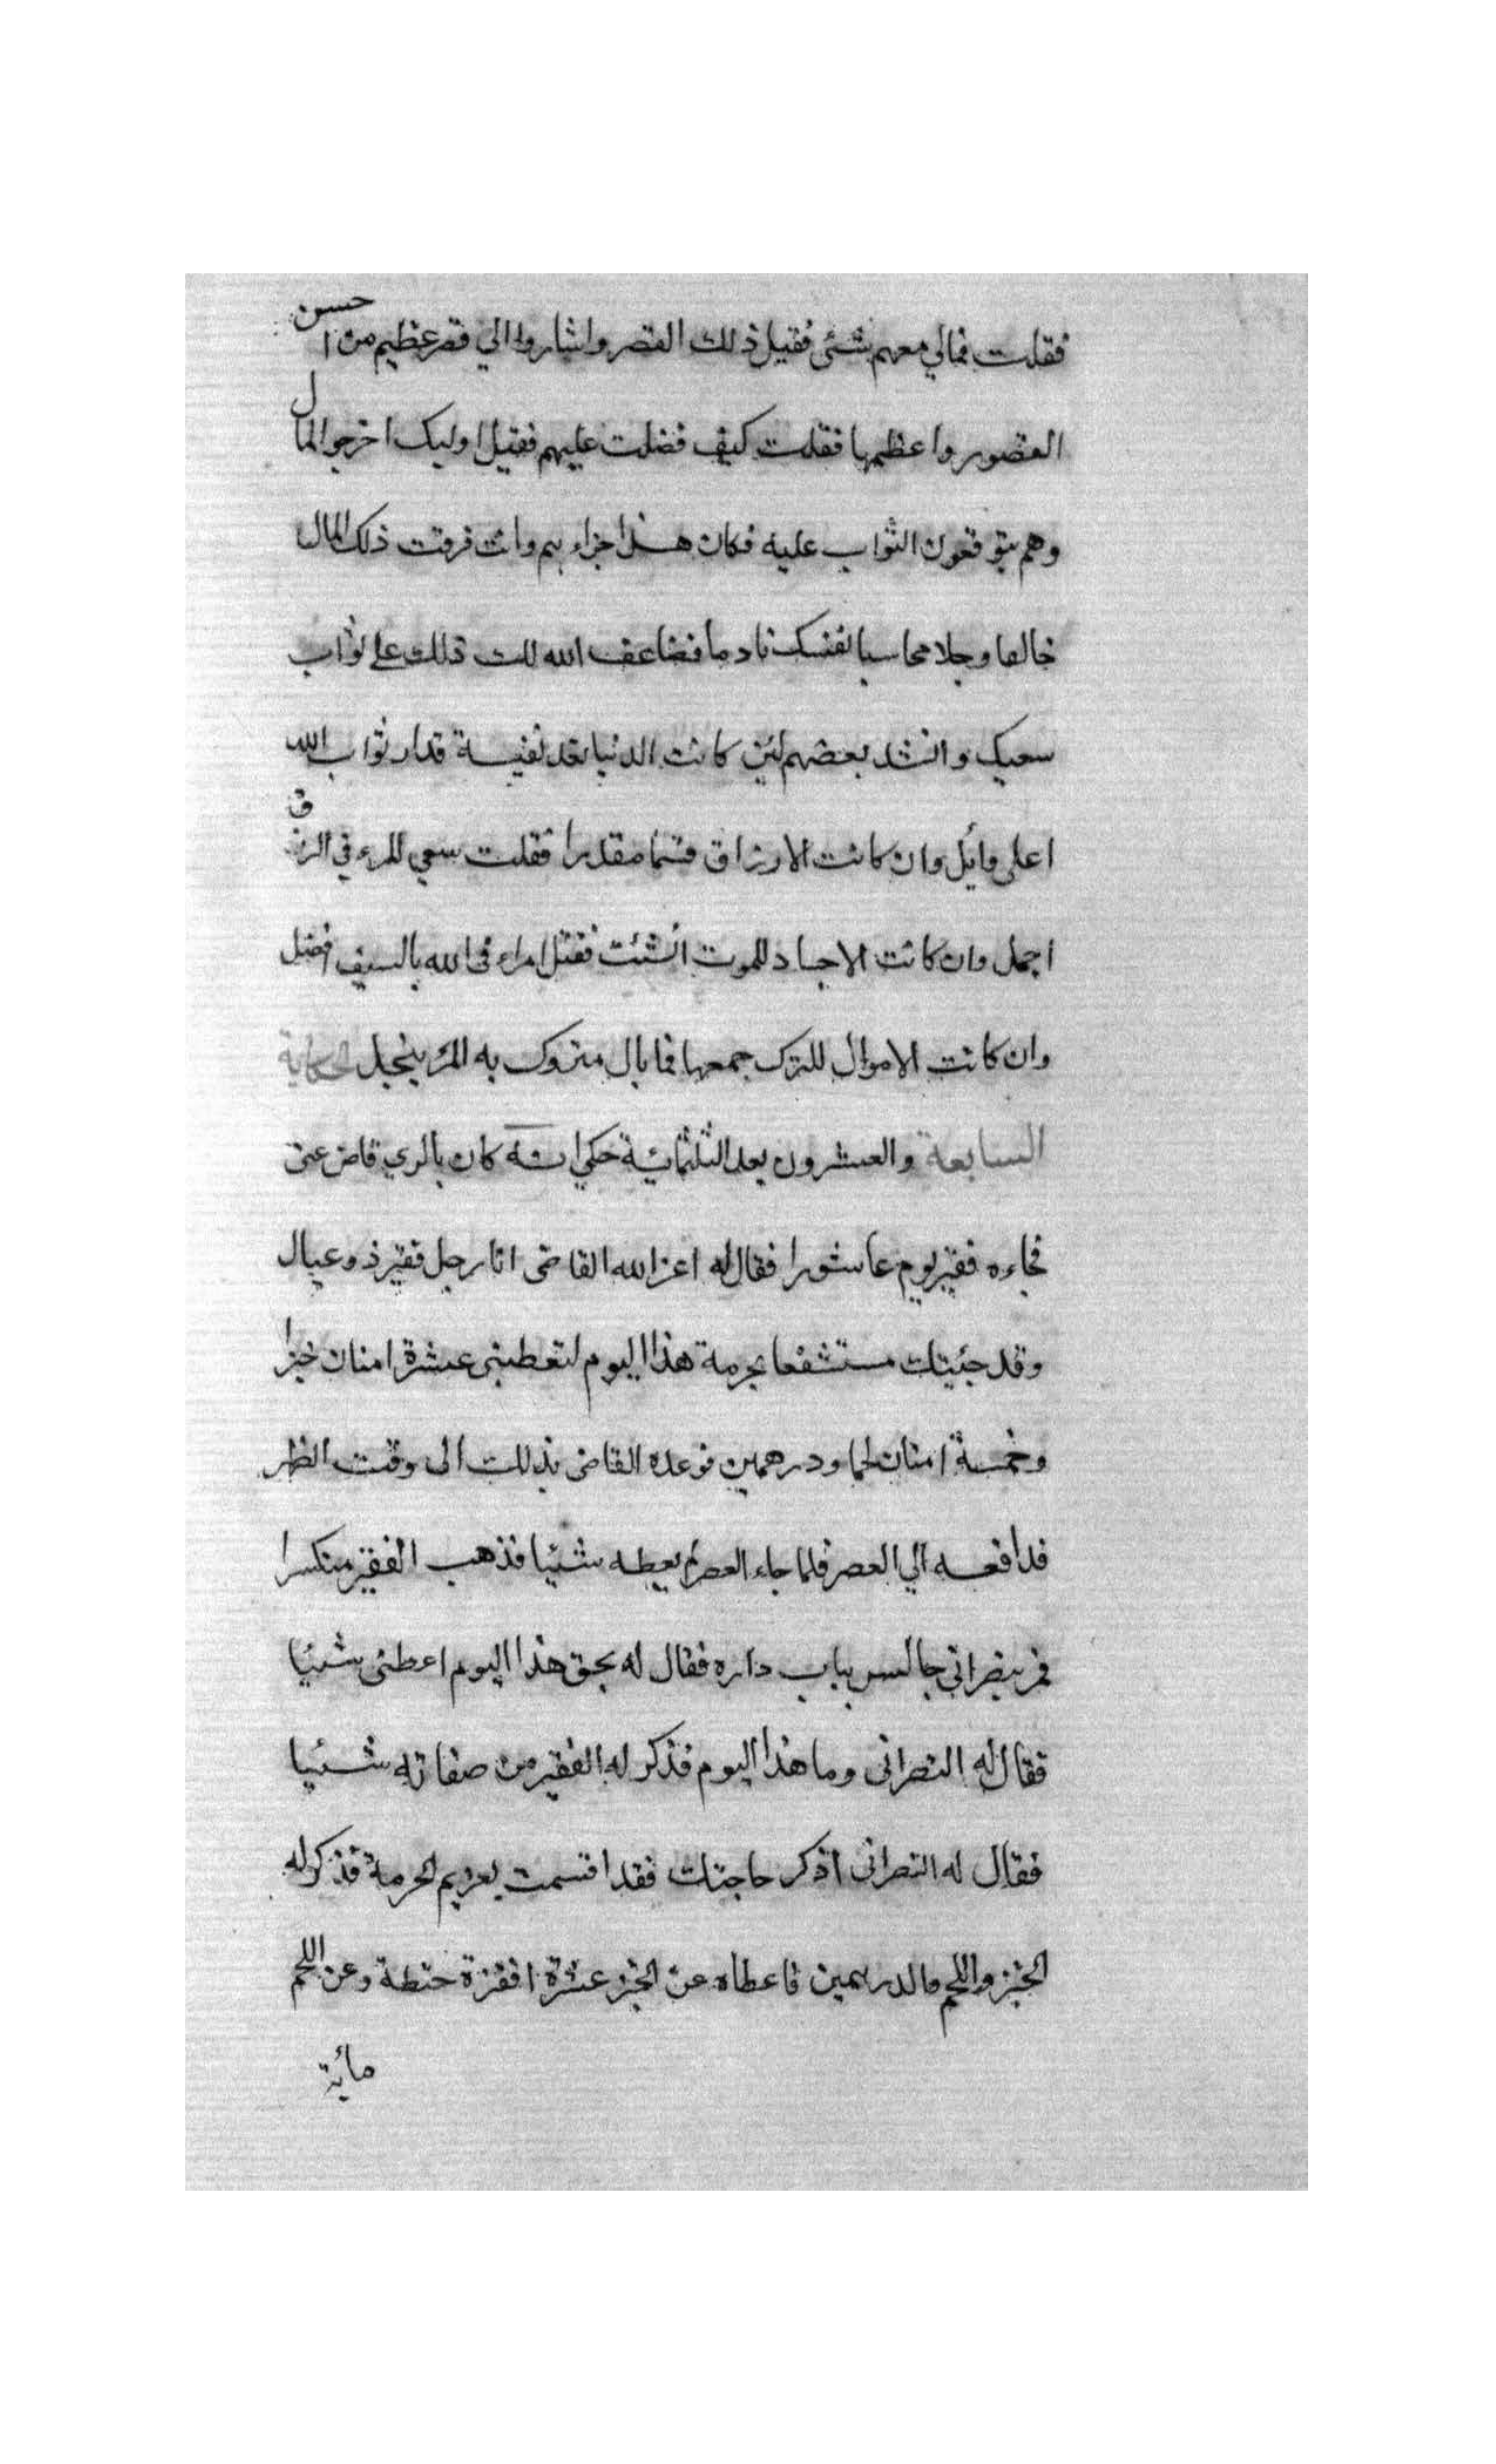 فقلت فمالي معهم شئى فقيل ذلك القصر واشاروا الي قصر عظيم من احسن
القصور واعظمها فقلت كيف فضلت عليهم فقيل اوليك اخرجوا المال
وهم يتوقعون الثواب عليه فكان هذا جزاءهم وانت فرقت ذلك المال
خالصا وجلا محاسبا لنفسك نادما فضاعف الله لك ذلك على ثواب
سعيك وانشد بعضهم لئن كانت الدنيا تعد نفيسة فدار ثواب الله
اعلى وانبل وان كانت الارزاق قسما مقدرا فقلت سعي المرء في الرزق
اجمل وان كانت الاجساد للموت انشئت فقتل امراء في الله بالسيف افضل
وان كانت الاموال للترك جمعها فما بال متروك به المرء يبخل الحكاية
السابعة والعشرون بعد الثلثمائة حكي انه كان بالري قاض غنى
فجاءه فقير يوم عاشورا فقال له اعز الله القاضى انا رجل فقير ذو عيال
وقد جئيتك مستشفعا بحرمة هذا اليوم لتعطينى عشرة امنان خبزا
وخمسة امنان لحما ودرهمين فوعده القاضى بذلك الى وقت الظهر
فدافعه الي العصر فلما جاء العصر لم يعطه شيئا فذهب الفقير منكسرا
فمر بنصرانى جالس بباب داره فقال له بحق هذا اليوم اعطنى شيئا
فقال له النصرانى وما هذا اليوم فذكر له الفقير من صفاته شيئا
فقال له النصرانى اذكر حاجتك فقد اقسمت بعزيم الحرمة فذكر له
الخبز واللحم والدرهمين فاعطاه عن الخبز عشرة اقفزة حنطة وعن اللحم
مائة